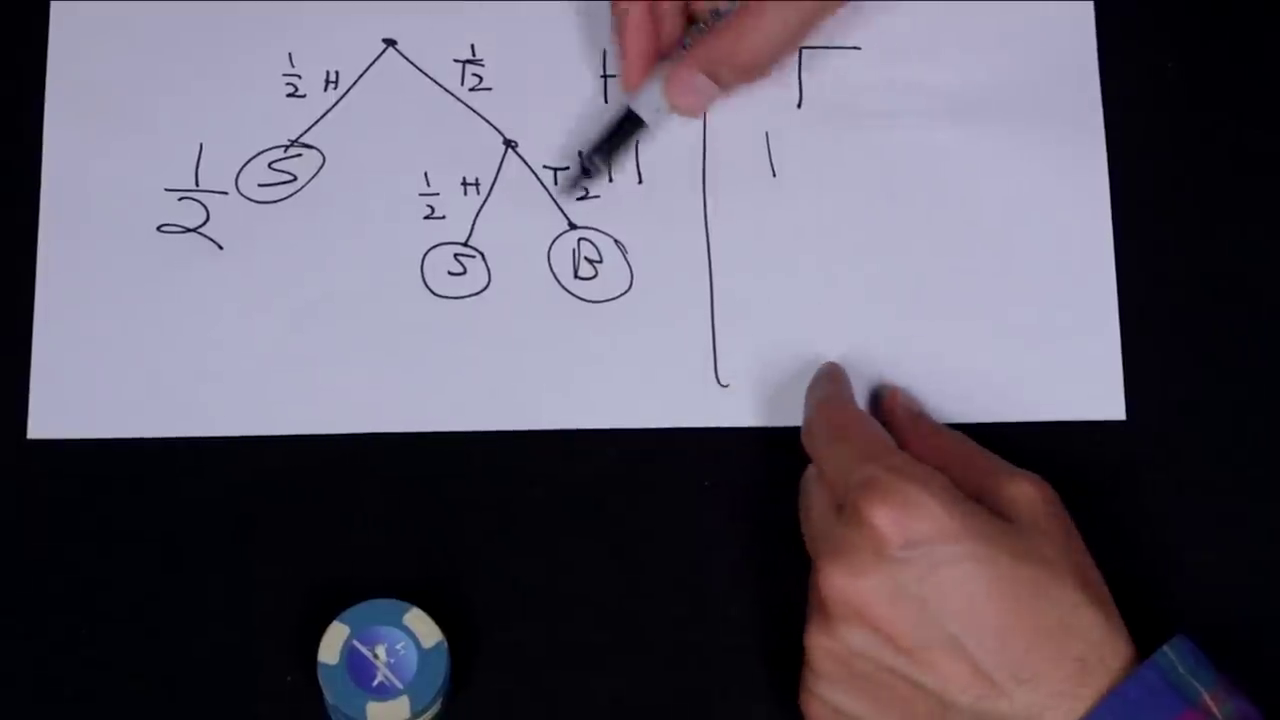 1/2 H T 1/2
1/2 S
1/2 H T 1/2
S B